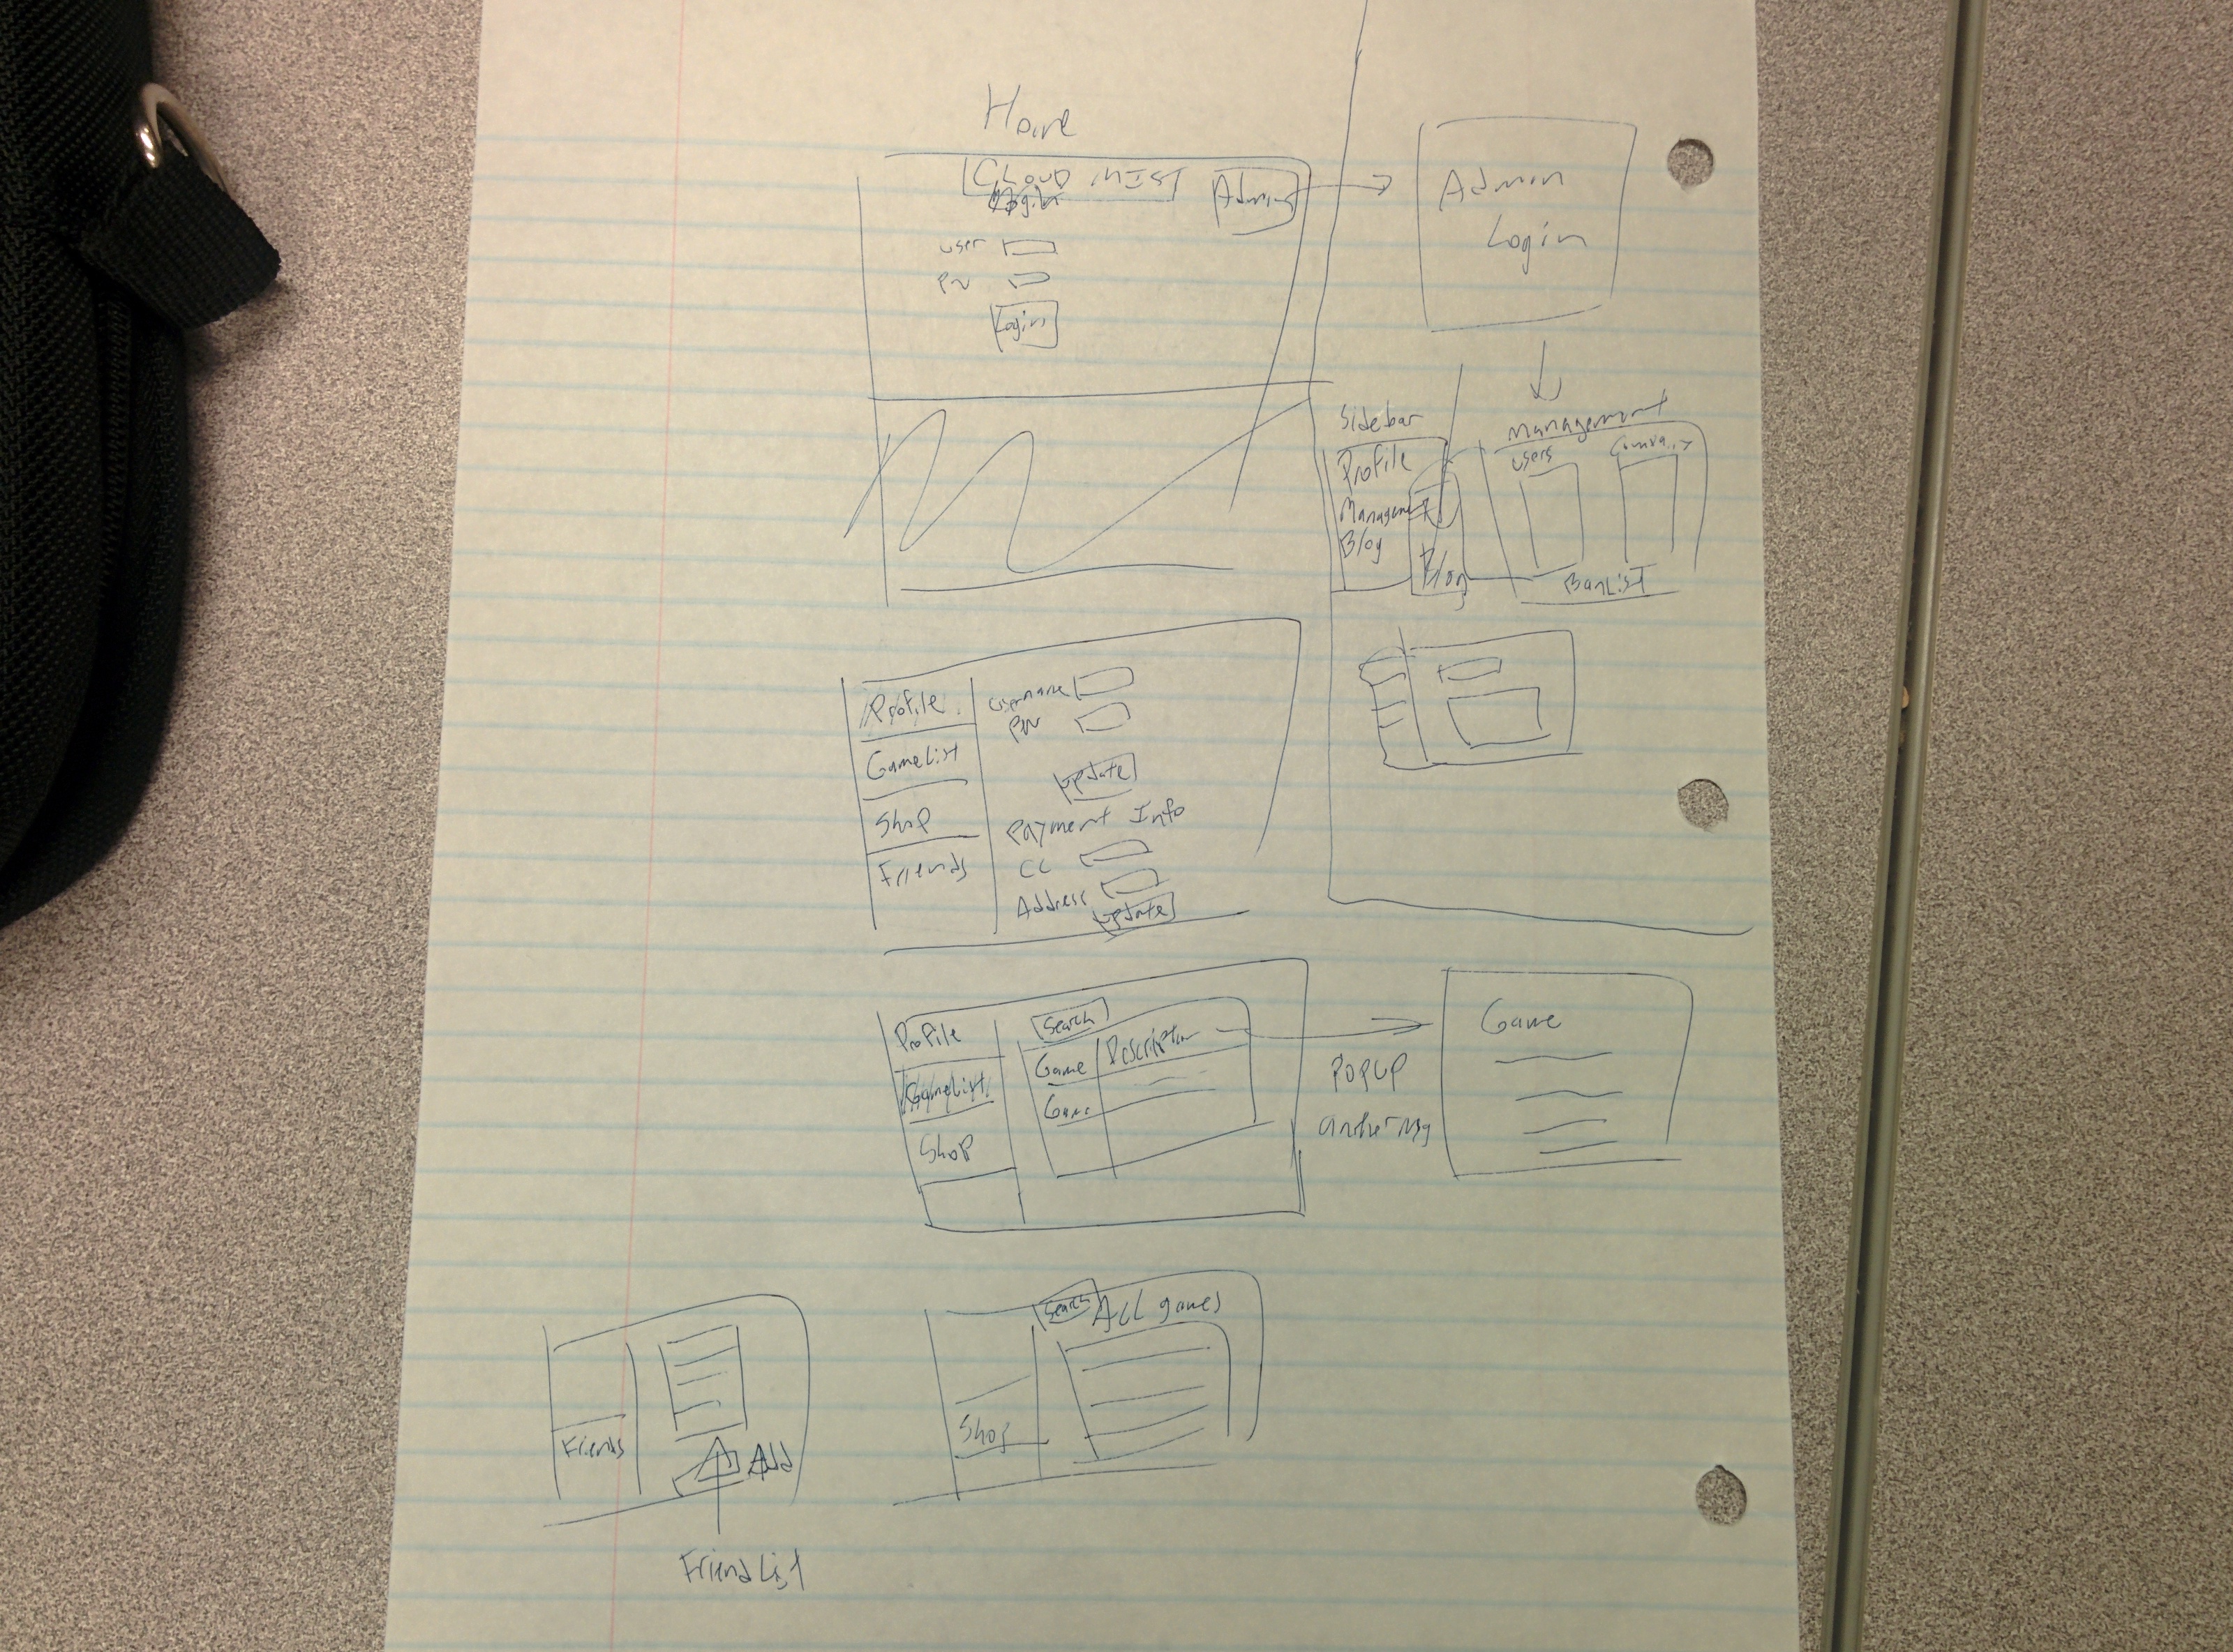 Home
CLOUD MIST
Login
Admin
user
PW
Login
Admin
Login
Sidebar
Profile
Management
Blog
Blog
Management
Users
BanList
Profile
GameList
Shop
Friends
Username
PW
Update
Payment Info
CC
Address
Update
Profile
GameList
Shop
Search
Game Description
Game
Popup
Game
Friends
Add
FriendList
Search All games
Shop